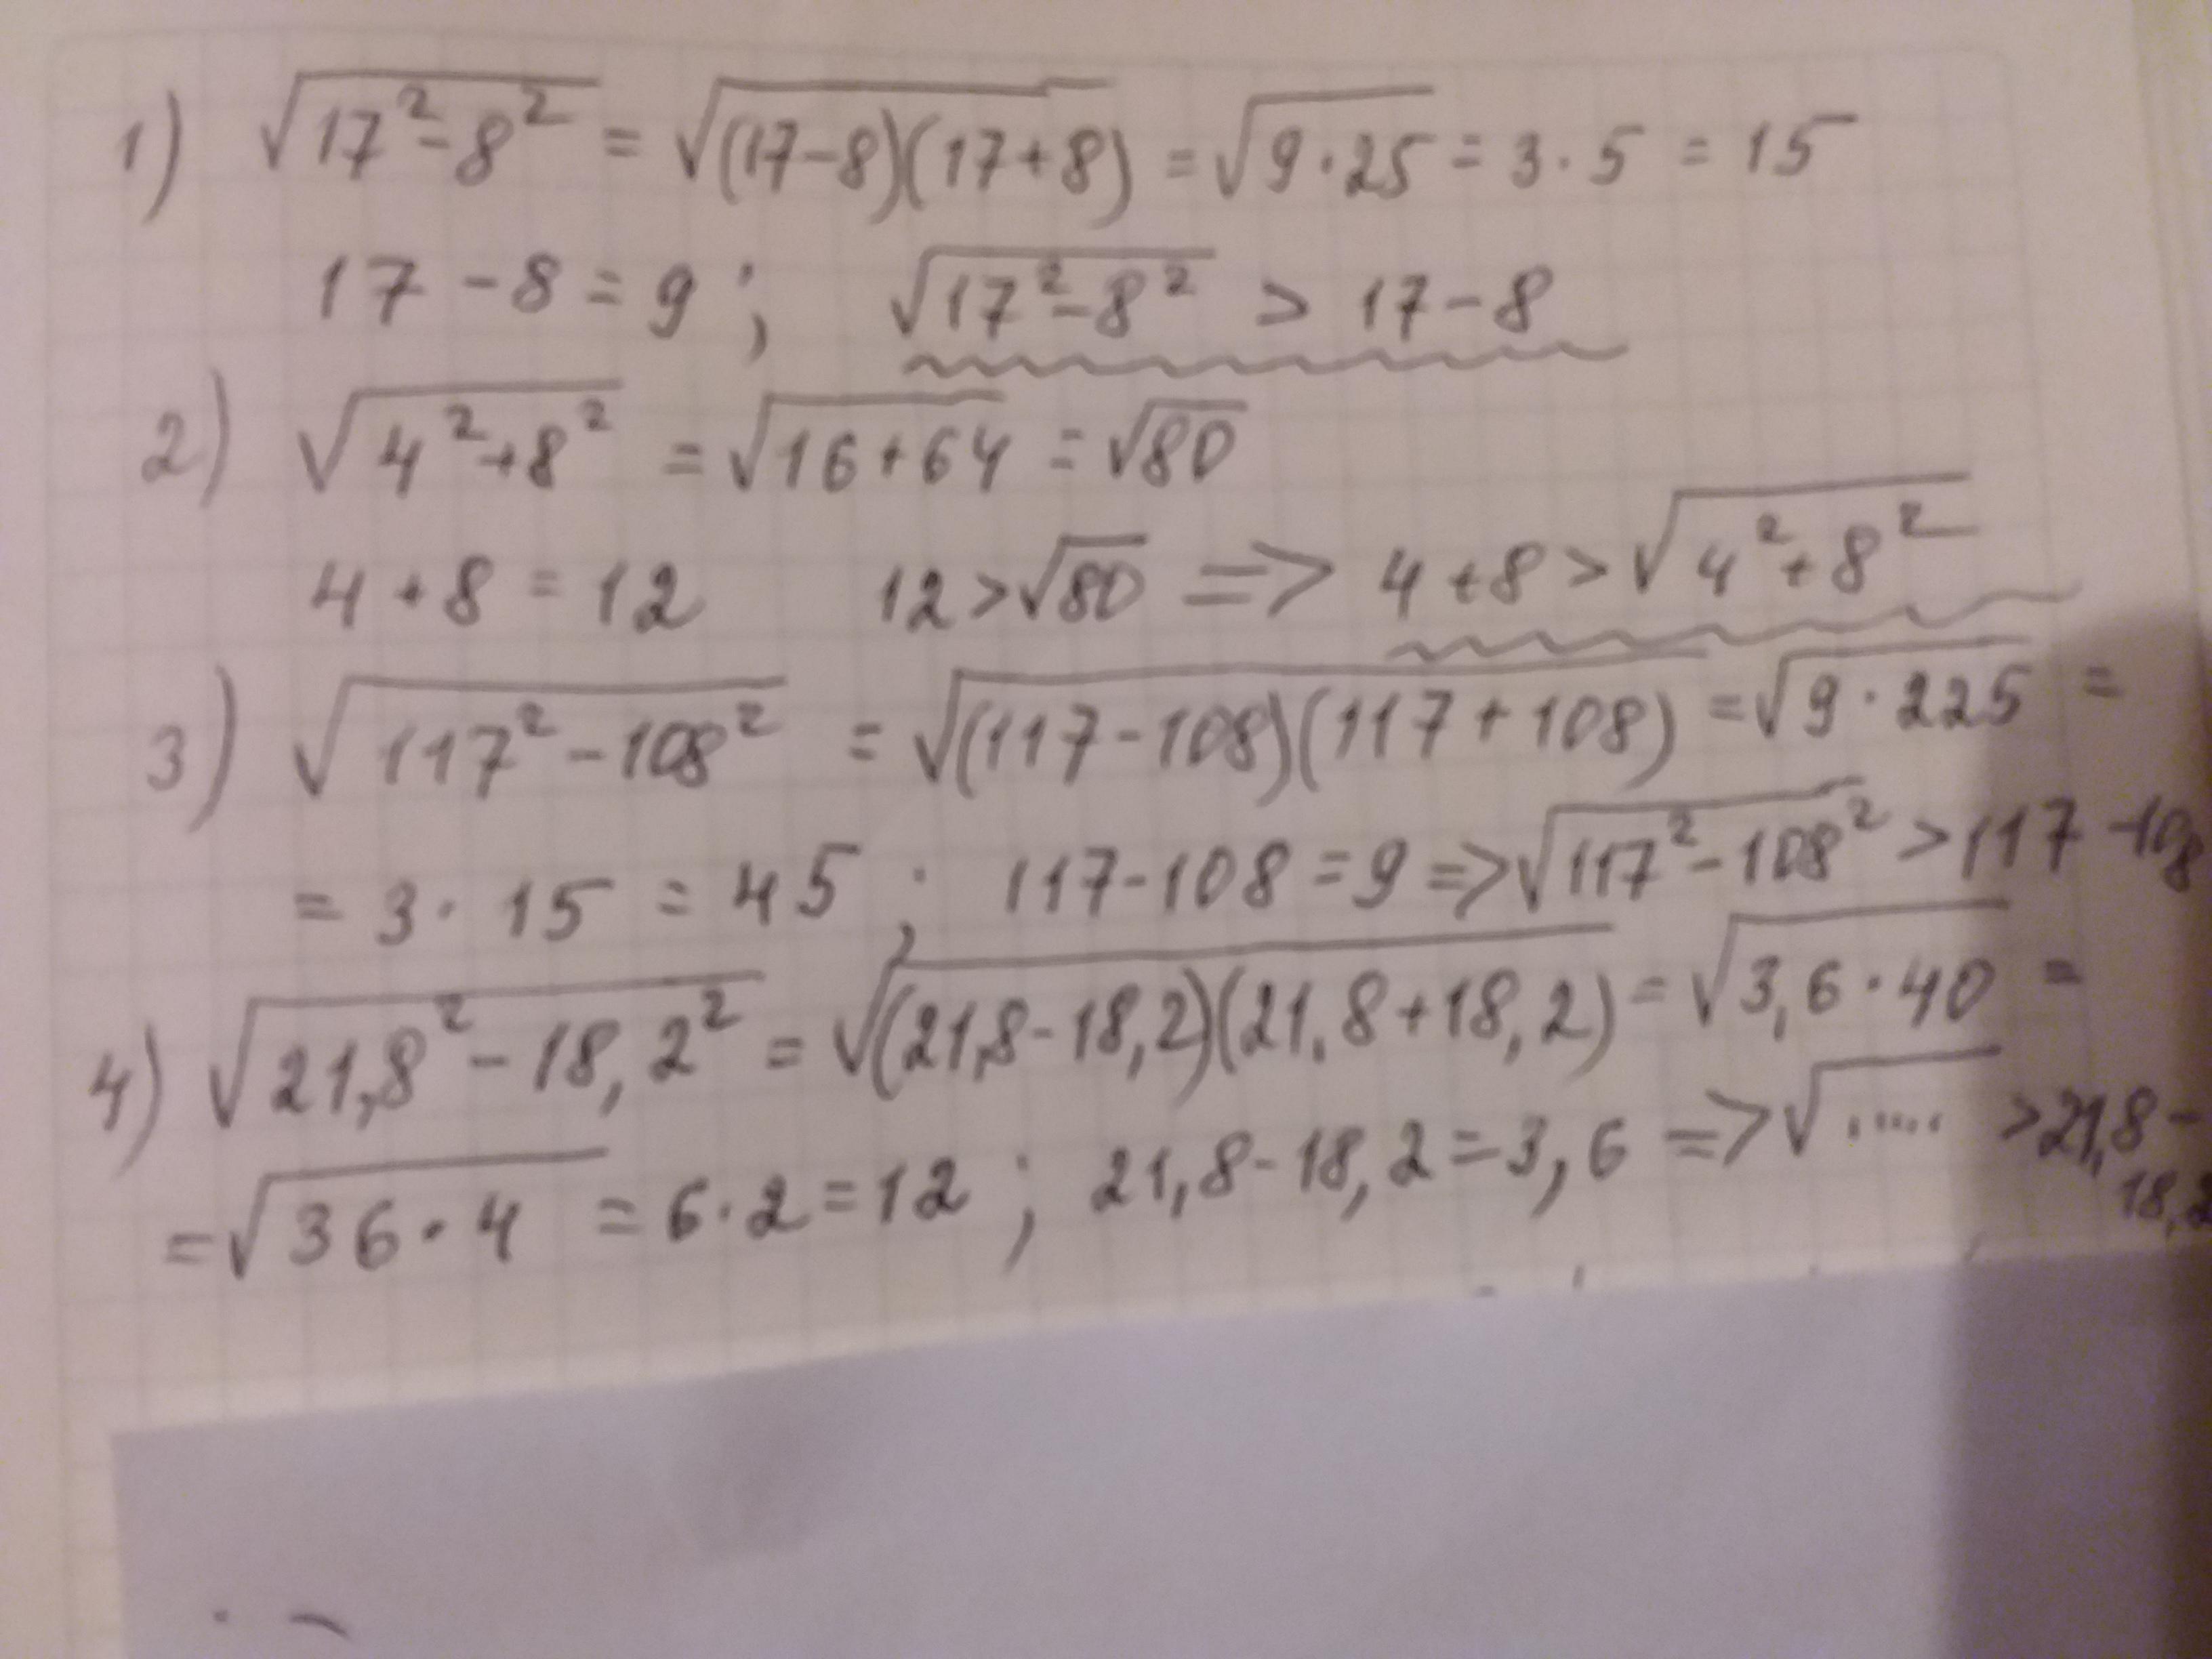 1) √(17²-8²) = √((17-8)(17+8)) = √(9·25) = 3·5 = 15
17-8=9; √(17²-8²) > 17-8
2) √(4²+8²) = √(16+64) = √80
4+8=12 12>√80 => 4+8>√(4²+8²)
3) √(117²-108²) = √((117-108)(117+108)) = √(9·225) =
= 3·15 = 45; 117-108=9 => √(117²-108²) > 117-108
4) √(21,8²-18,2²) = √((21,8-18,2)(21,8+18,2)) = √(3,6·40) =
= √(36·4) = 6·2 = 12; 21,8-18,2=3,6 => √..... > 21,8-
18,2